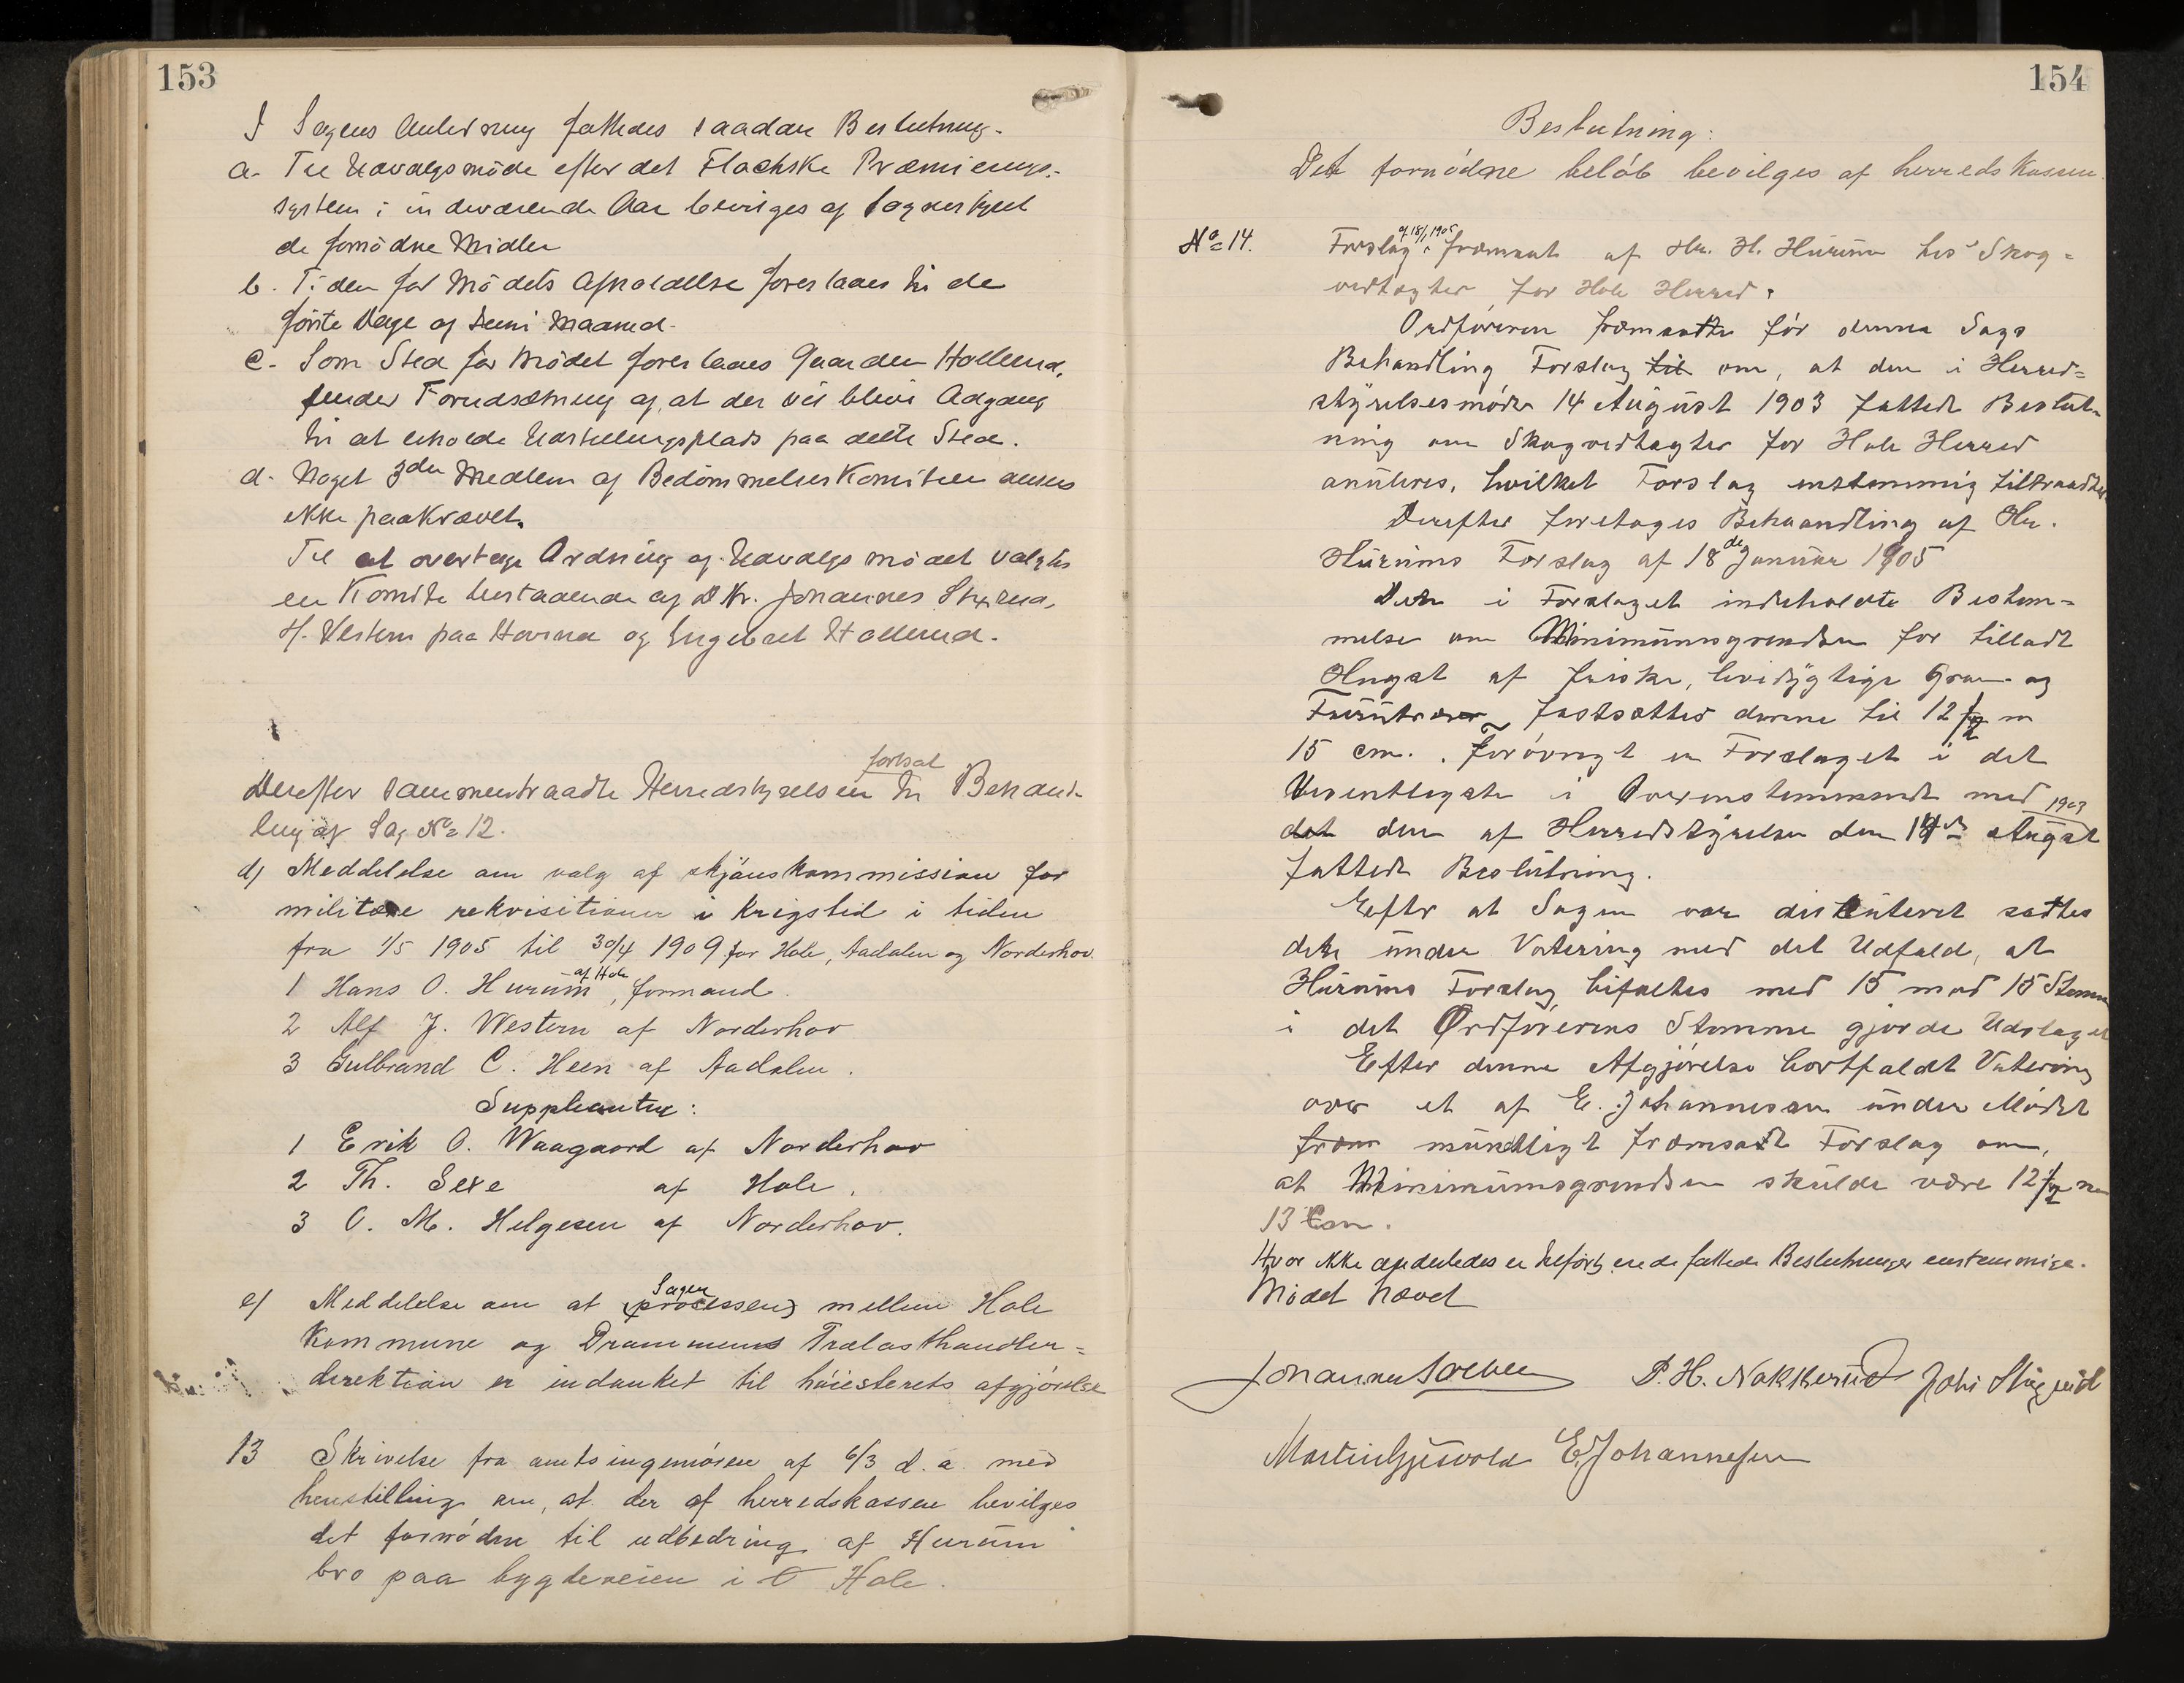 153
I Sagens Anledning fattedes saadan Beslutning.
a. Til Udvalgsmøde efter det Flachske Præmierings-
system i indeværende Aar bevilges af Sognestyret
de fornødne Midler
b. Tiden for Mødets Afholdelse foreslaaes til de
første Dage af Juni Maaned.
c. Som Sted for Mødet foreslaaes Gaarden Hollerud,
under Forudsætning af, at der vil blive Adgang
til at erholde Udstillingsplads paa dette Sted.
d. Noget 3die Medlem af Bedømmelses Komiteen ansees
ikke paakrævet.
Til at overtage Ordning af Udvalgsmødet valgtes
en Komite bestaaende af Hr. Johannes
H. Western paa Havina og Engebret Hollerud.
fortsat
Derefter sammentraadte Herredstyrelsen til Behand-
ling af Sag No 12.
d) Meddelelse om valg af skjønskommission for
militære rekvisitioner i krigstid i tiden
fra 1/5 1905 til 30/4 1909 for Hole, Aadalen og Norderhov.
1 Hans O. Hurum af Hole, formand.
2 Alf J. Western af Norderhov
3 Gulbrand C. Heen af Aadalen.
Suppleanter:
1 Erik O. Waagaard af Norderhov
2 Th. Sexe af Hole.
3 O. M. Helgesen af Norderhov.
Sagen
e) Meddelelse om at (processen) mellem Hole
Kommune og Drammens Trælasthandler-
direktion er indanket til høiesterets afgjørelse
13 Skrivelse fra amtsingeniøren af 6/3 d. a. med
henstilling om, at der af herredskassen bevilges
det fornødne til udbedring af Hurum
bro paa bygdeveien i Hole.
154
Beslutning:
Det fornødne beløb bevilges af herredskassen.
No 14. Forslag af 18/1 1905 fremsat af Hr. H. Hurum til Skog-
vedtægter for Hole Herred.
Ordføreren fremsatte før denne Sags
Behandling Forslag til om, at den i Herred-
styrelsesmøde 14 August 1903 fattede Beslut-
ning om Skogvedtægter for Hole Herred
anuleres, hvilket Forslag enstemmig tiltraadtes
Derefter foretoges Behandling af Hr.
Hurums Forslag af 18de Januar 1905
Den i Forslaget indeholdte Bestem-
melse om Minimumsgrændsen for tilladt
Hugst af friske, levedygtige Gran- og
Furutrær fastsættes denne til 12 1/2 m
15 cm. Forøvrigt er Forslaget i det
Væsentligste i Overensstemmelse med
det den af Herredstyrelsen den 14de August 1903
fattede Beslutning.
Efter at Sagen var diskuteret sattes
den under Votering med det Udfald, at
Hurums Forslag bifaltes med 15 mod 15 Stemmer
i det Ordførerens Stemme gjorde Udslaget
Efter denne Afgjørelse bortfaldt Votering
over et af E. Johannessen under Mødet
frem mundtligt fremsat Forslag om,
at Minimumsgrændsen skulde være 12 1/2 m
13 Cm.
Hvor ikke anderledes er tilført, er de fattede Beslutninger enstemmige.
Mødet hævet
P. H. Nakkerud
E. Johannesen